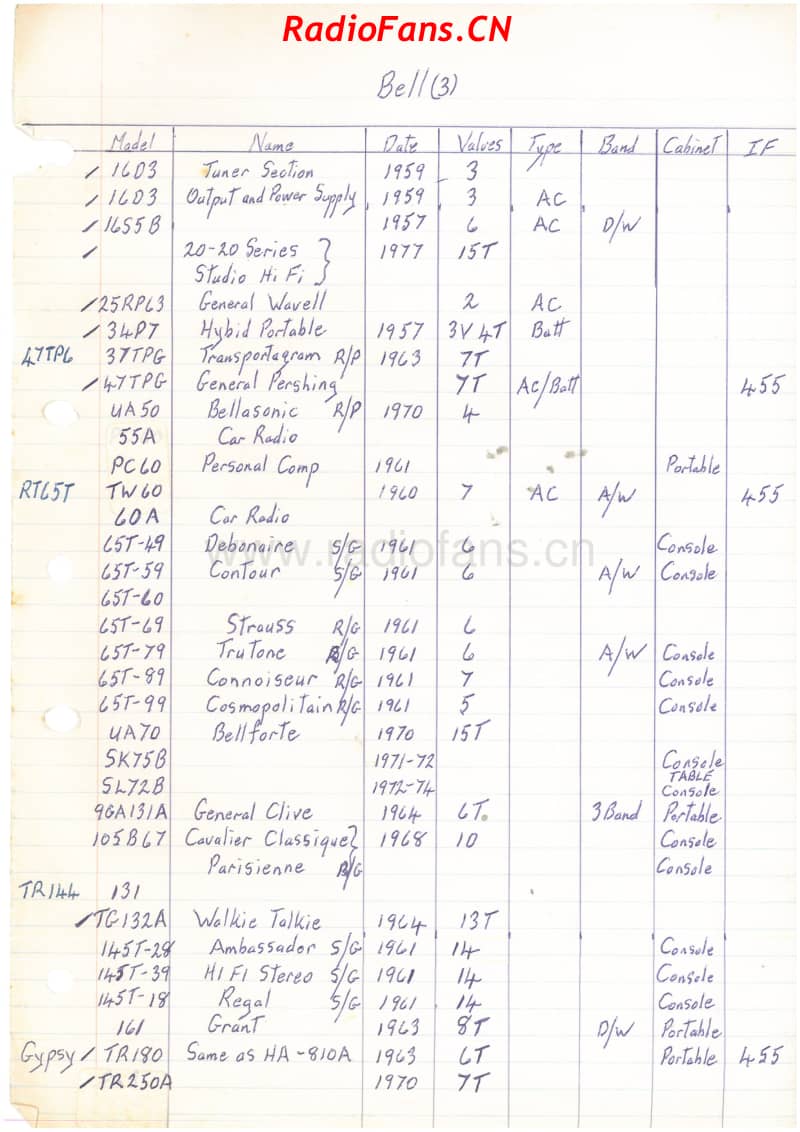 RadioFans.CN
Bell (3)
Model Name Date Valves Type Band Cabinet IF
/ 16D3 Tuner Section 1959 3
/ 16D3 Output and Power Supply 1959 3 AC
/ 16S5B 1957 6 AC D/W
/ 20-20 Series } 1977 15T
Studio Hi Fi }
/ 25RP63 General Wavell 2 AC
/ 34P7 Hybid Portable 1957 3V 4T Batt
47TP6 37TPG Transportagram R/P 1963 7T
/ 47TPG General Pershing 7T AC/Batt 455
UA50 Bellasonic R/P 1970 4
55A Car Radio
PC60 Personal Comp 1961 Portable
RT65T TW60 1960 7 AC A/W 455
60A Car Radio
65T-49 Debonaire S/G 1961 6 Console
www.radiofans.cn
65T-59 Contour S/G 1961 6 A/W Console
65T-60
65T-69 Strauss R/G 1961 6
65T-79 Trutone R/G 1961 6 A/W Console
65T-89 Connoiseur R/G 1961 7 Console
65T-99 Cosmopolitain R/G 1961 5 Console
UA70 Bellforte 1970 15T
SK75B 1971-72 Console
TABLE
SL72B 1972-74 Console
9GA131A General Clive 1964 6T. 3 Band Portable
105B67 Cavalier Classique } 1968 10 Console
Parisienne R/G Console
TR144 131
/ TG132A Walkie Talkie 1964 13T
145T-28 Ambassador S/G 1961 14 Console
145T-39 HI FI Stereo S/G 1961 14 Console
145T-18 Regal S/G 1961 14 Console
161 Grant 1963 8T D/W Portable
Gypsy / TR180 Same as HA-810A 1963 6T Portable 455
/ TR250A 1970 7T